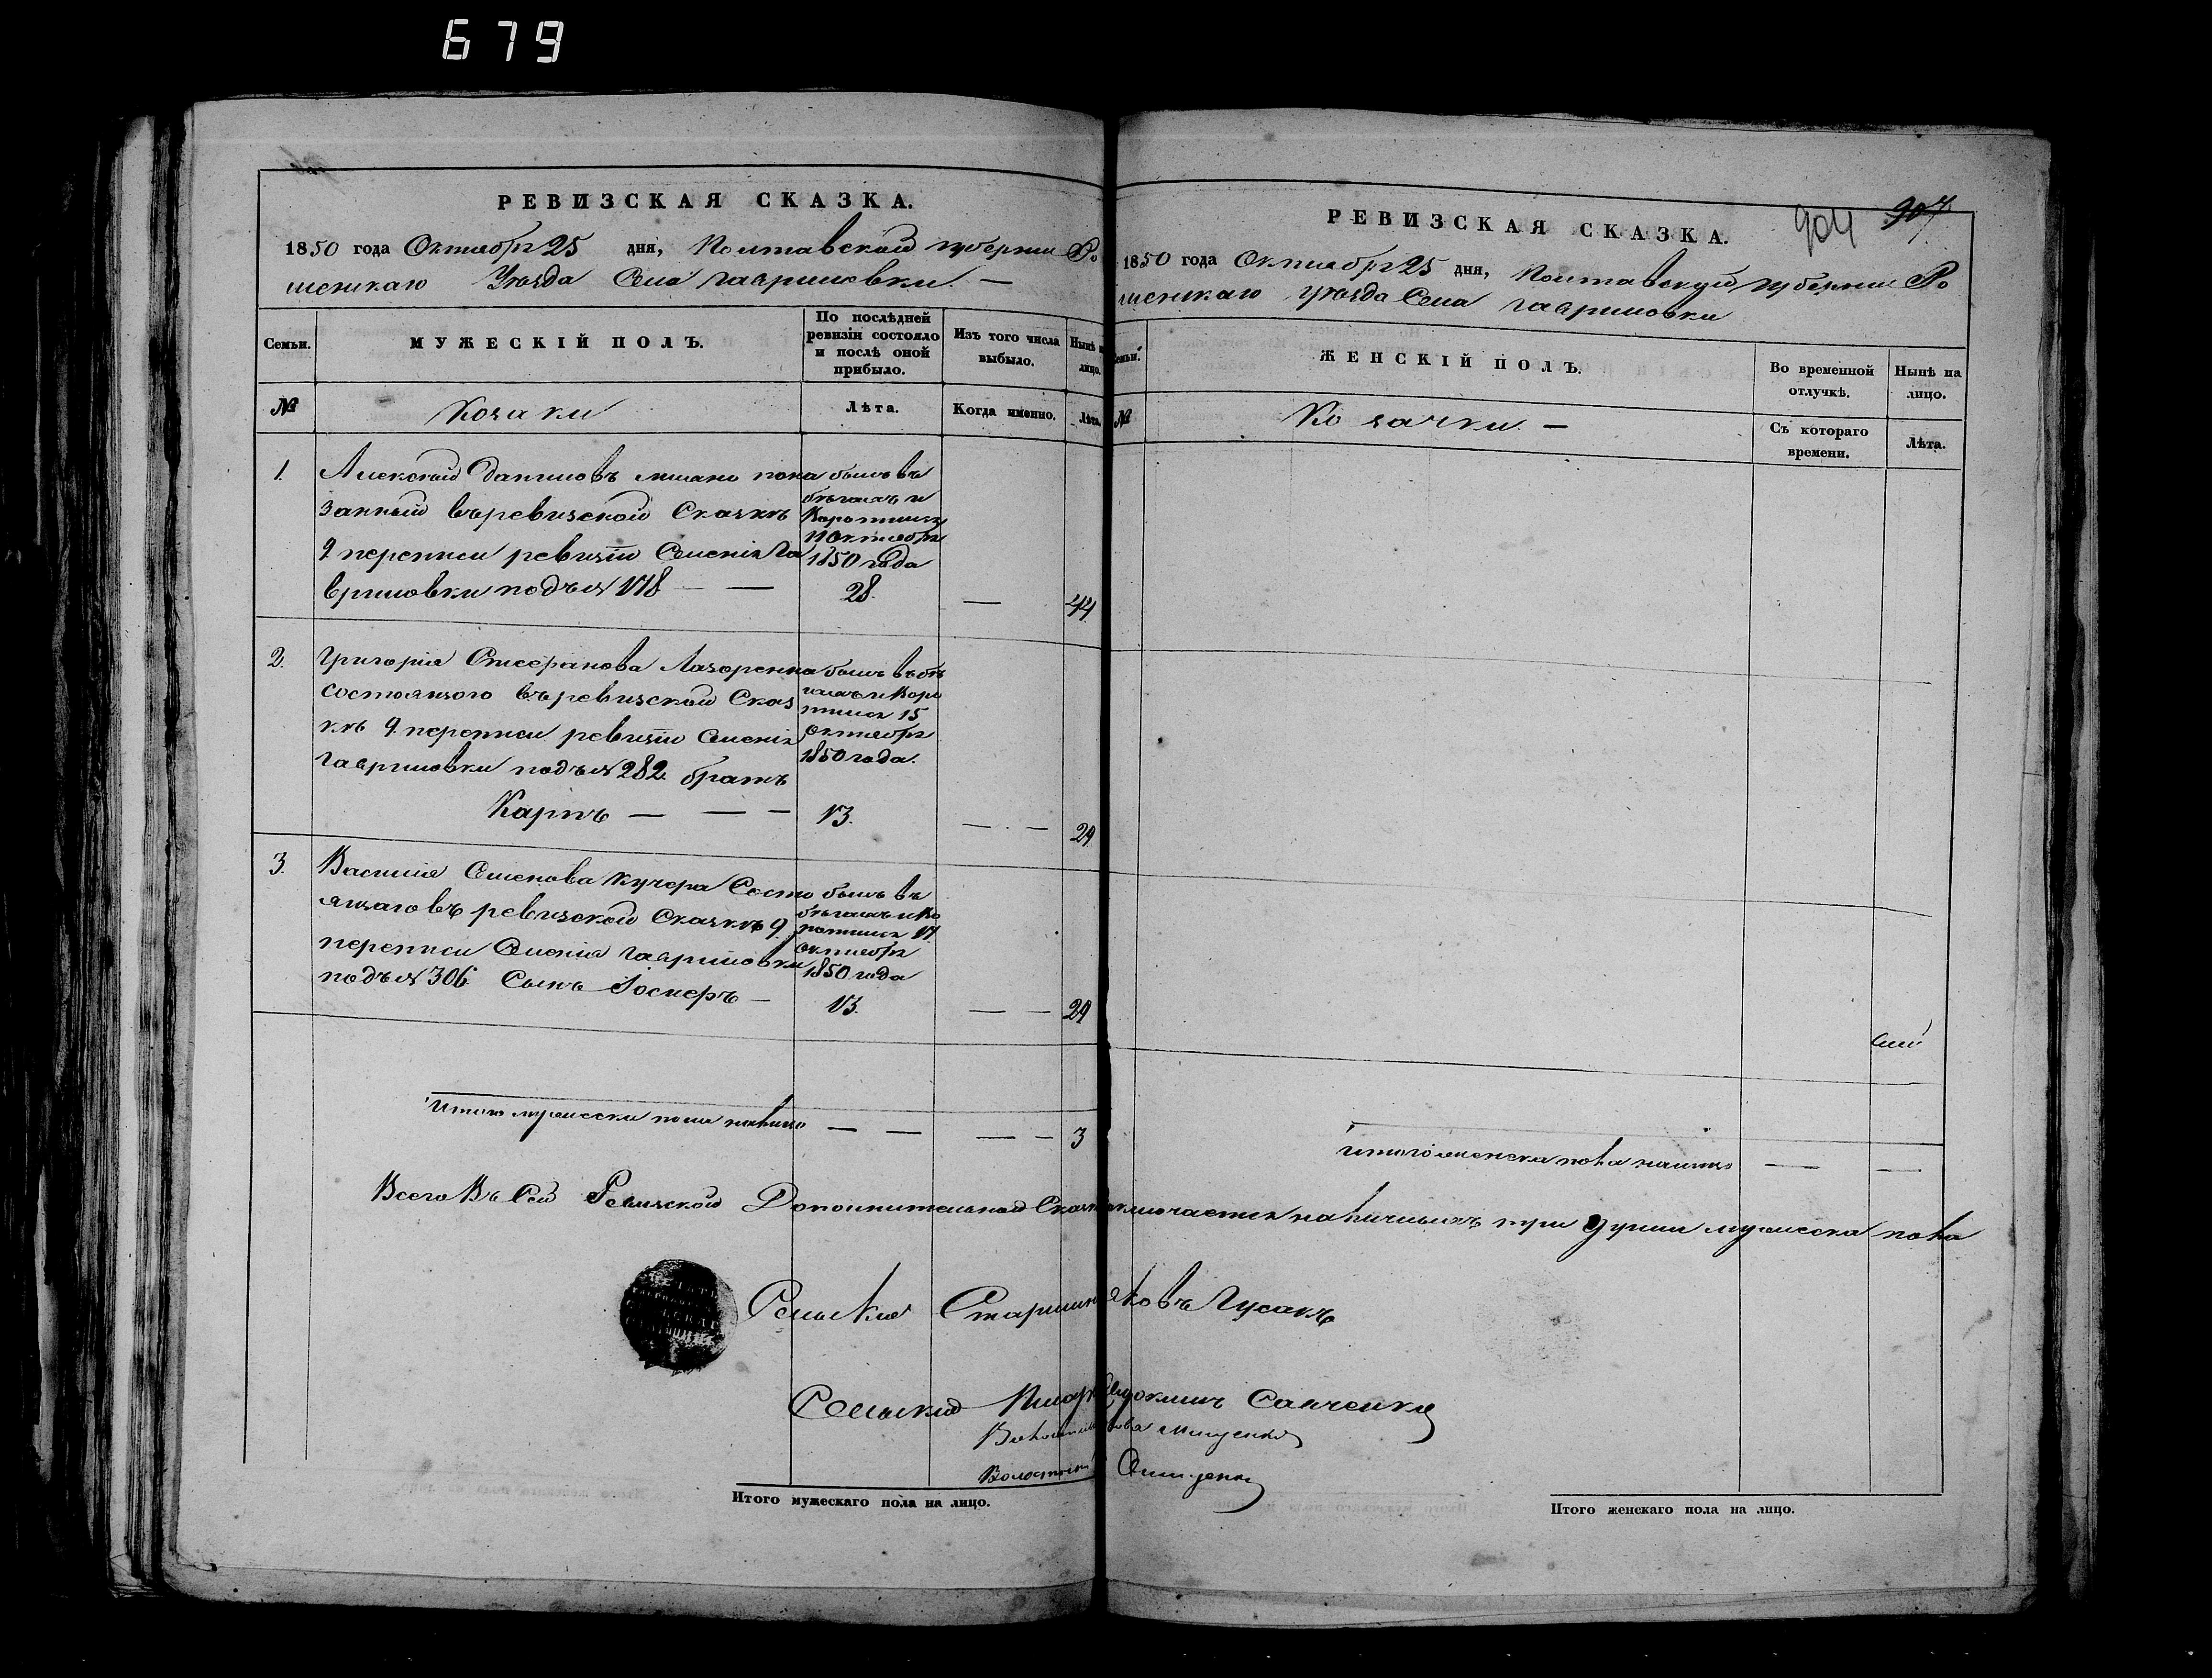 679
РЕВИЗСКАЯ СКАЗКА.
1850 года Октября 25 дня, Полтавской губернии Ро
менскаго Уѣзда Села Гавриловки. —
Семьи. МУЖЕСКІЙ ПОЛЪ. По послѣдней ревизіи состояло и послѣ оной прибыло. Изъ того числа выбыло. Нынѣ на лицо.
№ Козаки Лѣта. Когда именно. Лѣта.
1. Алексѣй Даниловъ пока
занный въ ревизской Сказкѣ
9 переписи ревизіи Селенія Га
вриловки подъ № 178 — —
былъ въ
бѣгахъ и
11 октября
1850 года
28. — 44
2. Григорія Лазоренка
состоящого въ ревизской Сказ
кѣ 9 переписи ревизіи Селенія
Гавриловки подъ № 282 братъ
Карпъ — — —
былъ въ бѣ
гахъ и
15
октября
1850 года.
13. — — 29
3. Василія Семенова Кучера Состо
ящаго въ ревизской Сказкѣ 9
переписи Селенія Гавриловки
подъ № 306 Сынъ —
былъ въ
бѣгахъ и
17
октября
1850 года
13. — — 29
Итого мужеска пола налицо — — — — 3
РЕВИЗСКАЯ СКАЗКА.
904 907
1850 года Октября 25 дня, Полтавской губернии Ро
менскаго уѣзда Села Гавриловки
Семьи. ЖЕНСКІЙ ПОЛЪ. Во временной отлучкѣ. Нынѣ на лицо.
№ Козачки — Съ котораго времени. Лѣта.
Итого женска пола налицо — —
Всего Въ Сей Ревизской Дополнительной наличныхъ три души мужеска пола
Сельский Старшина Яковъ Гусакъ
Сельский Писарь Евдокимъ Санченко
Мищенко
Волостной
Итого мужескаго пола на лицо.
Итого женскаго пола на лицо.